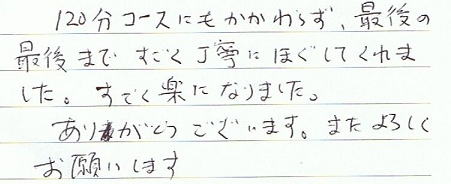 120分コースにもかかわらず、最後の
最後まですごく丁寧にほぐしてくれま
した。すごく楽になりました。
ありがとうございます。またよろしく
お願いします